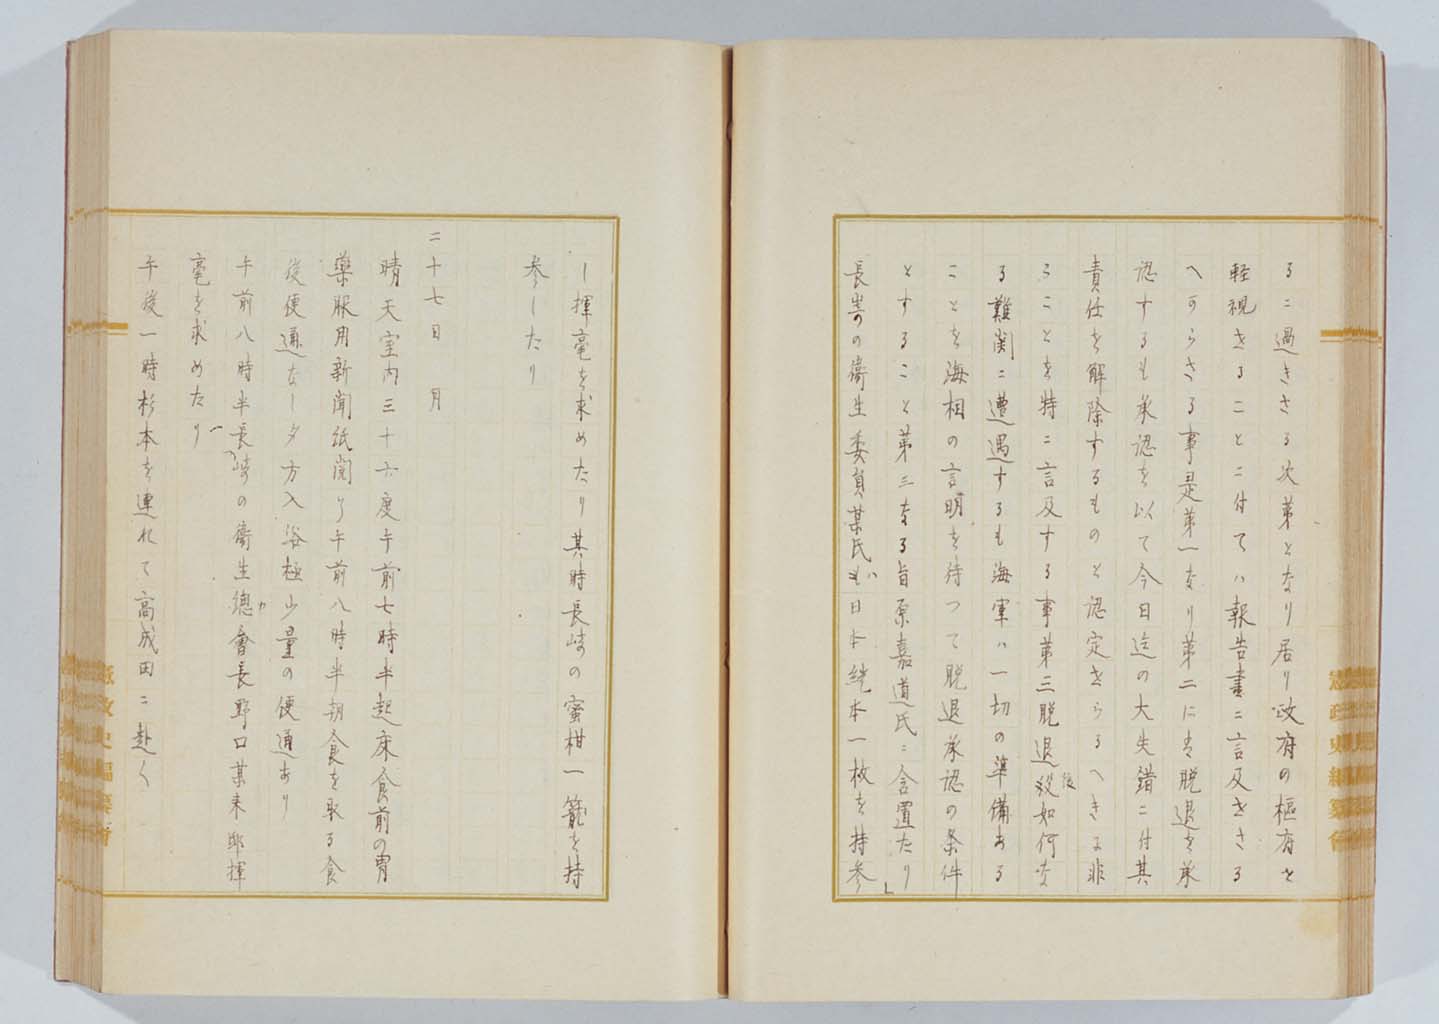 るに過きさる次第となり居り政府の枢府を
軽視さることに付ては報告書に言及せさる
へからさる事是第一なり第二には脱退を承
認するも承認を以て今日迄の大失錯に付其
責任を解除するものと認定せらるへきに非
ることを特に言及する事第三脱退後如何な
る難関に遭遇するも海軍は一切の準備ある
ことを海相の言明を待つて脱退承認の条件
とすること第三なる旨原嘉道氏に含置たり」
長崎の衛生委員某氏も日本絖本一枚を持参
し揮毫を求めたり其時長崎の蜜柑一籠を持
参したり
二十七日 月
晴天室内三十六度午前七時半起床食前の胃
薬服用新聞紙閲り午前八時半朝食を取る食
後便通なし夕方入浴極少量の便通あり
午前八時半長崎の衛生総会長野口某来邸揮
毫を求めたり
午後一時杉本を連れて高成田に赴く
憲政史編纂会
憲政史編纂会